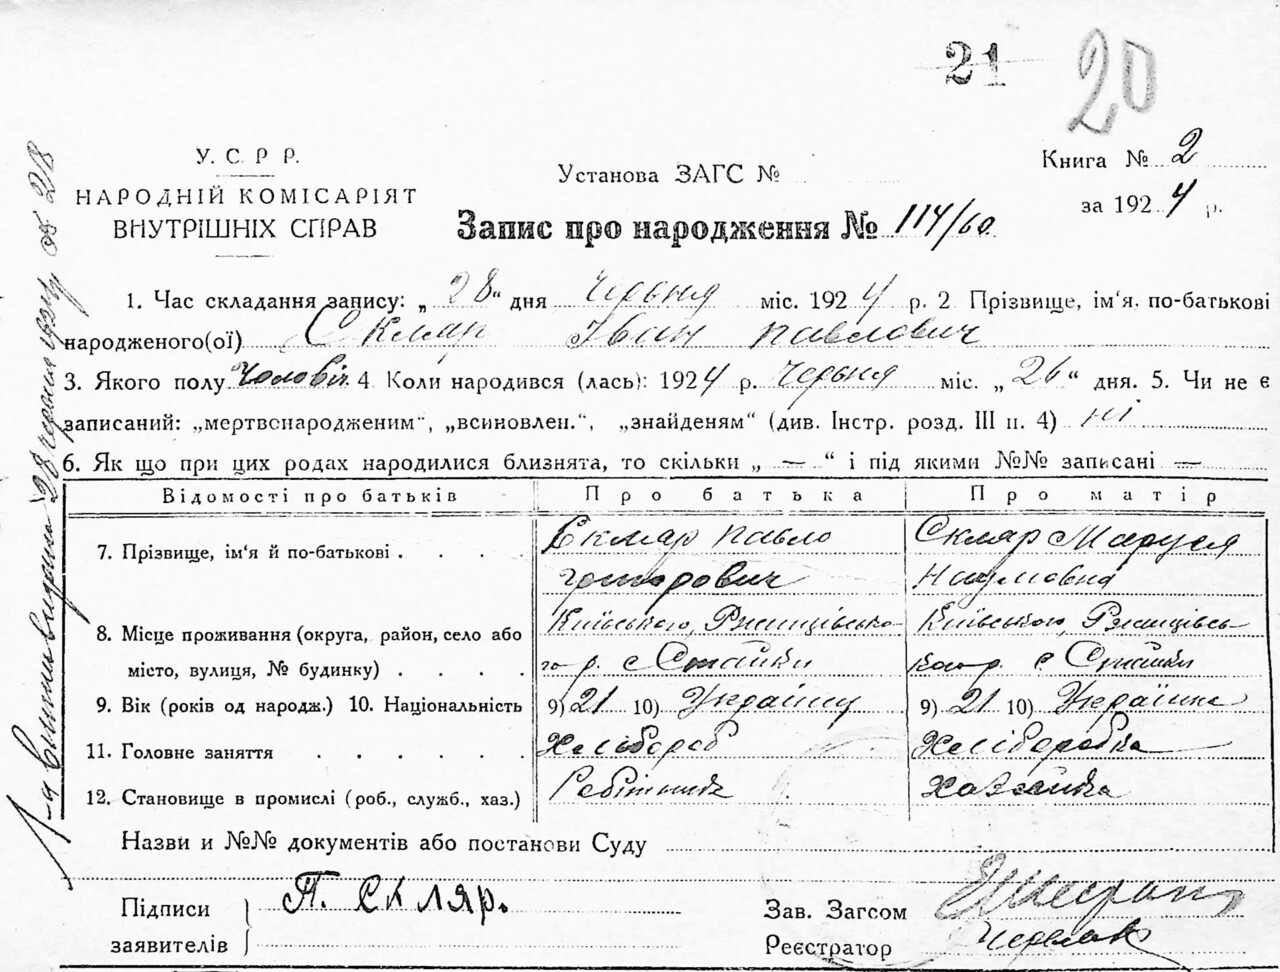 21 20
У. С. Р Р.
НАРОДНІЙ КОМІСАРІЯТ
ВНУТРІШНІХ СПРАВ
Установа ЗАГС №
Запис про народження № 114/60
Книга № 2
за 1924 р.
1. Час складання запису: „28“ дня Червня міс. 1924 р. 2 Прізвище, ім'я, по-батькові
народженого(ої) Скляр Іван Павлович
3. Якого полу Чоловіч. 4 Коли народився (лась): 1924 р. Червня міс. „26“ дня. 5. Чи не є
записаний: „мертвонародженим“, „всиновлен.“, „знайденям“ (див. Інстр. розд. III п. 4) ні
6. Як що при цих родах народилися близнята, то скільки „ — “ і під якими №№ записані —
Відомості про батьків Про батька Про матір
7. Прізвище, ім'я й по-батькові . . . . Скляр Павло Скляр Маруся
Григорович Наумовна
8. Місце проживання (округа, район, село або Київського, Ржищівсько- Київського, Ржищівсь-
місто, вулиця, № будинку) . . . . го р. с Стайки кого р. с Стайки
9. Вік (років од народж.) 10. Національність 9) 21 10) Українец 9) 21 10) Українка
11. Головне заняття . . . . . . Хлібороб Хліборобка
12. Становище в промислі (роб., служб., хаз.) Робітник Хазяйка
Назви и №№ документів або постанови Суду
Підписи
заявителів
П. Скляр.
Зав. Загсом
Реєстратор
1-а виписъ видана 28 червня 1924 р за № 218